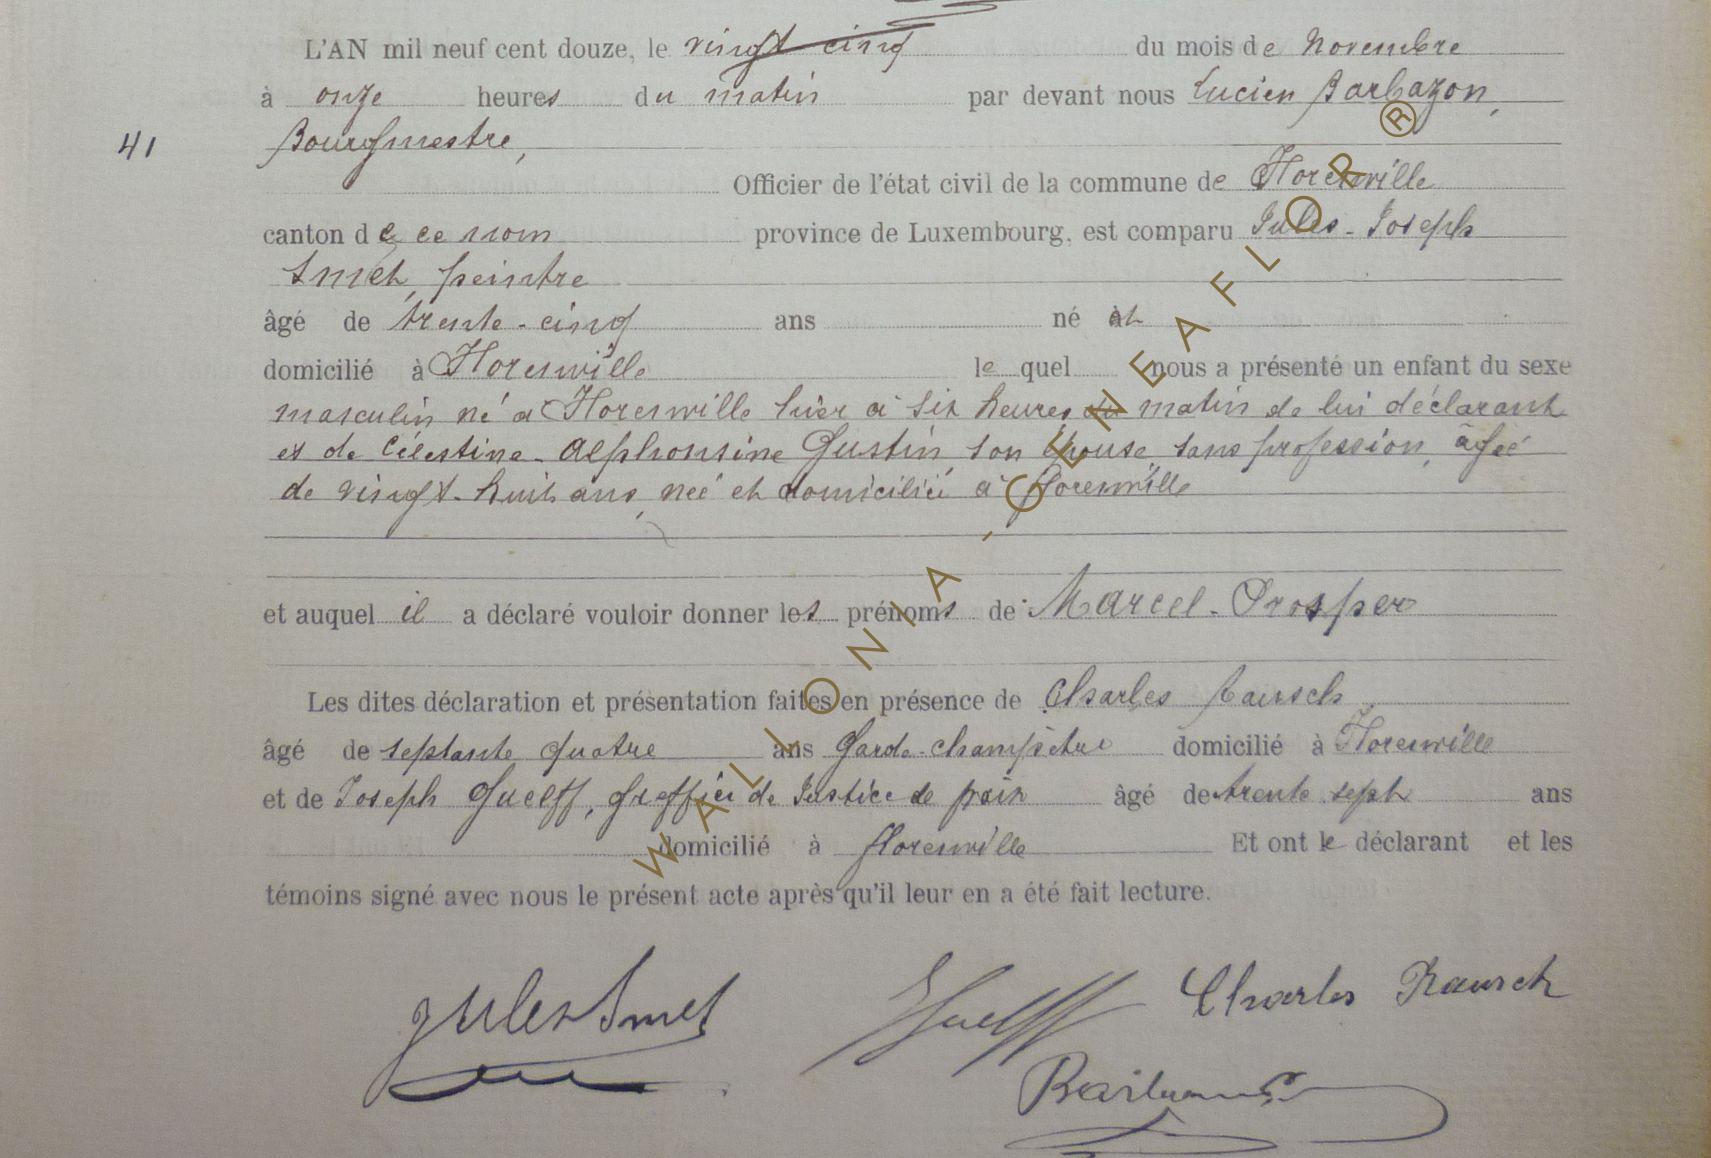 L'AN mil neuf cent douze, le vingt cinq du mois de Novembre
à onze heures du matin par devant nous Lucien Barbazon,
41 Bourgmestre,
Officier de l'état civil de la commune de Florenville
canton de ce nom province de Luxembourg, est comparu Jules-Joseph
Smet, peintre
âgé de trente-cinq ans né et
domicilié à Florenville lequel nous a présenté un enfant du sexe
masculin né à Florenville hier à six heures du matin de lui déclarant
et de Célestine-Alphonsine Gustin, son épouse, sans profession, âgée
de vingt-huit ans, née et domiciliée à Florenville
et auquel il a déclaré vouloir donner les prénoms de Marcel-Prosper
Les dites déclaration et présentation faites en présence de Charles Rausch,
âgé de septante quatre ans Garde-champêtre domicilié à Florenville
et de Joseph Guelff, Greffier de Justice de paix âgé de trente sept ans
domicilié à Florenville Et ont le déclarant et les
témoins signé avec nous le présent acte après qu'il leur en a été fait lecture.
Jules Smet Guelff Charles Rausch
WALLONIA - GENEAFLOR ®